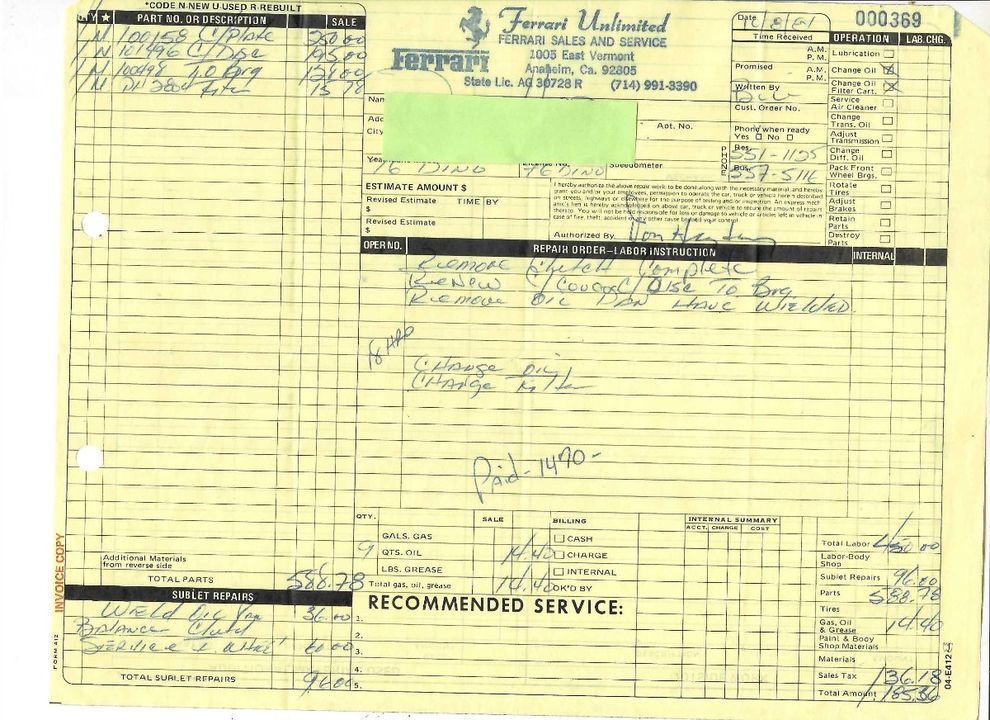 *CODE N-NEW U-USED R-REBUILT
QTY ★ PART NO. OR DESCRIPTION SALE
1 N 100158 C/Plate 250.00
1 N 101496 C/Disc 195.00
1 N 100498 T.O Brg
1 N 15 78
Ferrari
Ferrari Unlimited
FERRARI SALES AND SERVICE
1005 East Vermont
Anaheim, Ca. 92805
State Lic. AG 30728 R (714) 991-3390
Date
000369
Time Received A.M. P.M.
Promised A.M. P.M.
Written By Bill
Cust. Order No.
Phone when ready
Yes No
PHONE
Res. 551-1155
Bus. 557-5116
Apt. No.
City
76 DINO 76 DINO Speedometer
OPERATION LAB. CHG.
Lubrication
Change Oil
Change Oil Filter Cart.
Service Air Cleaner
Change Trans. Oil
Adjust Transmission
Change Diff. Oil
Pack Front Wheel Brgs.
Rotate Tires
Adjust Brakes
Retain Parts
Destroy Parts
ESTIMATE AMOUNT $
Revised Estimate TIME BY
$
Revised Estimate
$
I hereby authorize the above repair work to be done along with the necessary material, and hereby
grant you and/or your employees, permission to operate the car, truck or vehicle here n described
on streets, highways or elsewhere for the purpose of testing and/or inspection. An express mech-
anic's lien is hereby acknowledged on above car, truck or vehicle to secure the amount of repairs
thereto. You will not be held responsible for loss or damage to vehicle or articles left in vehicle in
case of fire, theft, accident or any other cause beyond your control.
Authorized By
OPER NO. REPAIR ORDER—LABOR INSTRUCTION INTERNAL
Remove Clutch Complete
Renew C/Cover C/Disc TO Brg
Remove OIL PAN HAVE WIELDED.
18 HRS
CHANGE OIL
CHANGE
Paid - 1470 -
QTY. SALE BILLING
INTERNAL SUMMARY
ACCT. CHARGE COST
GALS. GAS CASH
9 QTS. OIL 14.40 CHARGE
LBS. GREASE INTERNAL
Total gas, oil, grease 14.40 OK'D BY
INVOICE COPY
Additional Materials
from reverse side
TOTAL PARTS 588.78
SUBLET REPAIRS
Wield Oil Pan 36.00
Balance Clutch
60.00
TOTAL SUBLET REPAIRS 96.00
RECOMMENDED SERVICE:
1.
2.
3.
4.
5.
Total Labor 450.00
Labor-Body Shop
Sublet Repairs 96.00
Parts 588.78
Tires
Gas, Oil & Grease 14.40
Paint & Body Shop Materials
Materials
Sales Tax 36.18
Total Amount 1185.36
FORM 412
04-E412